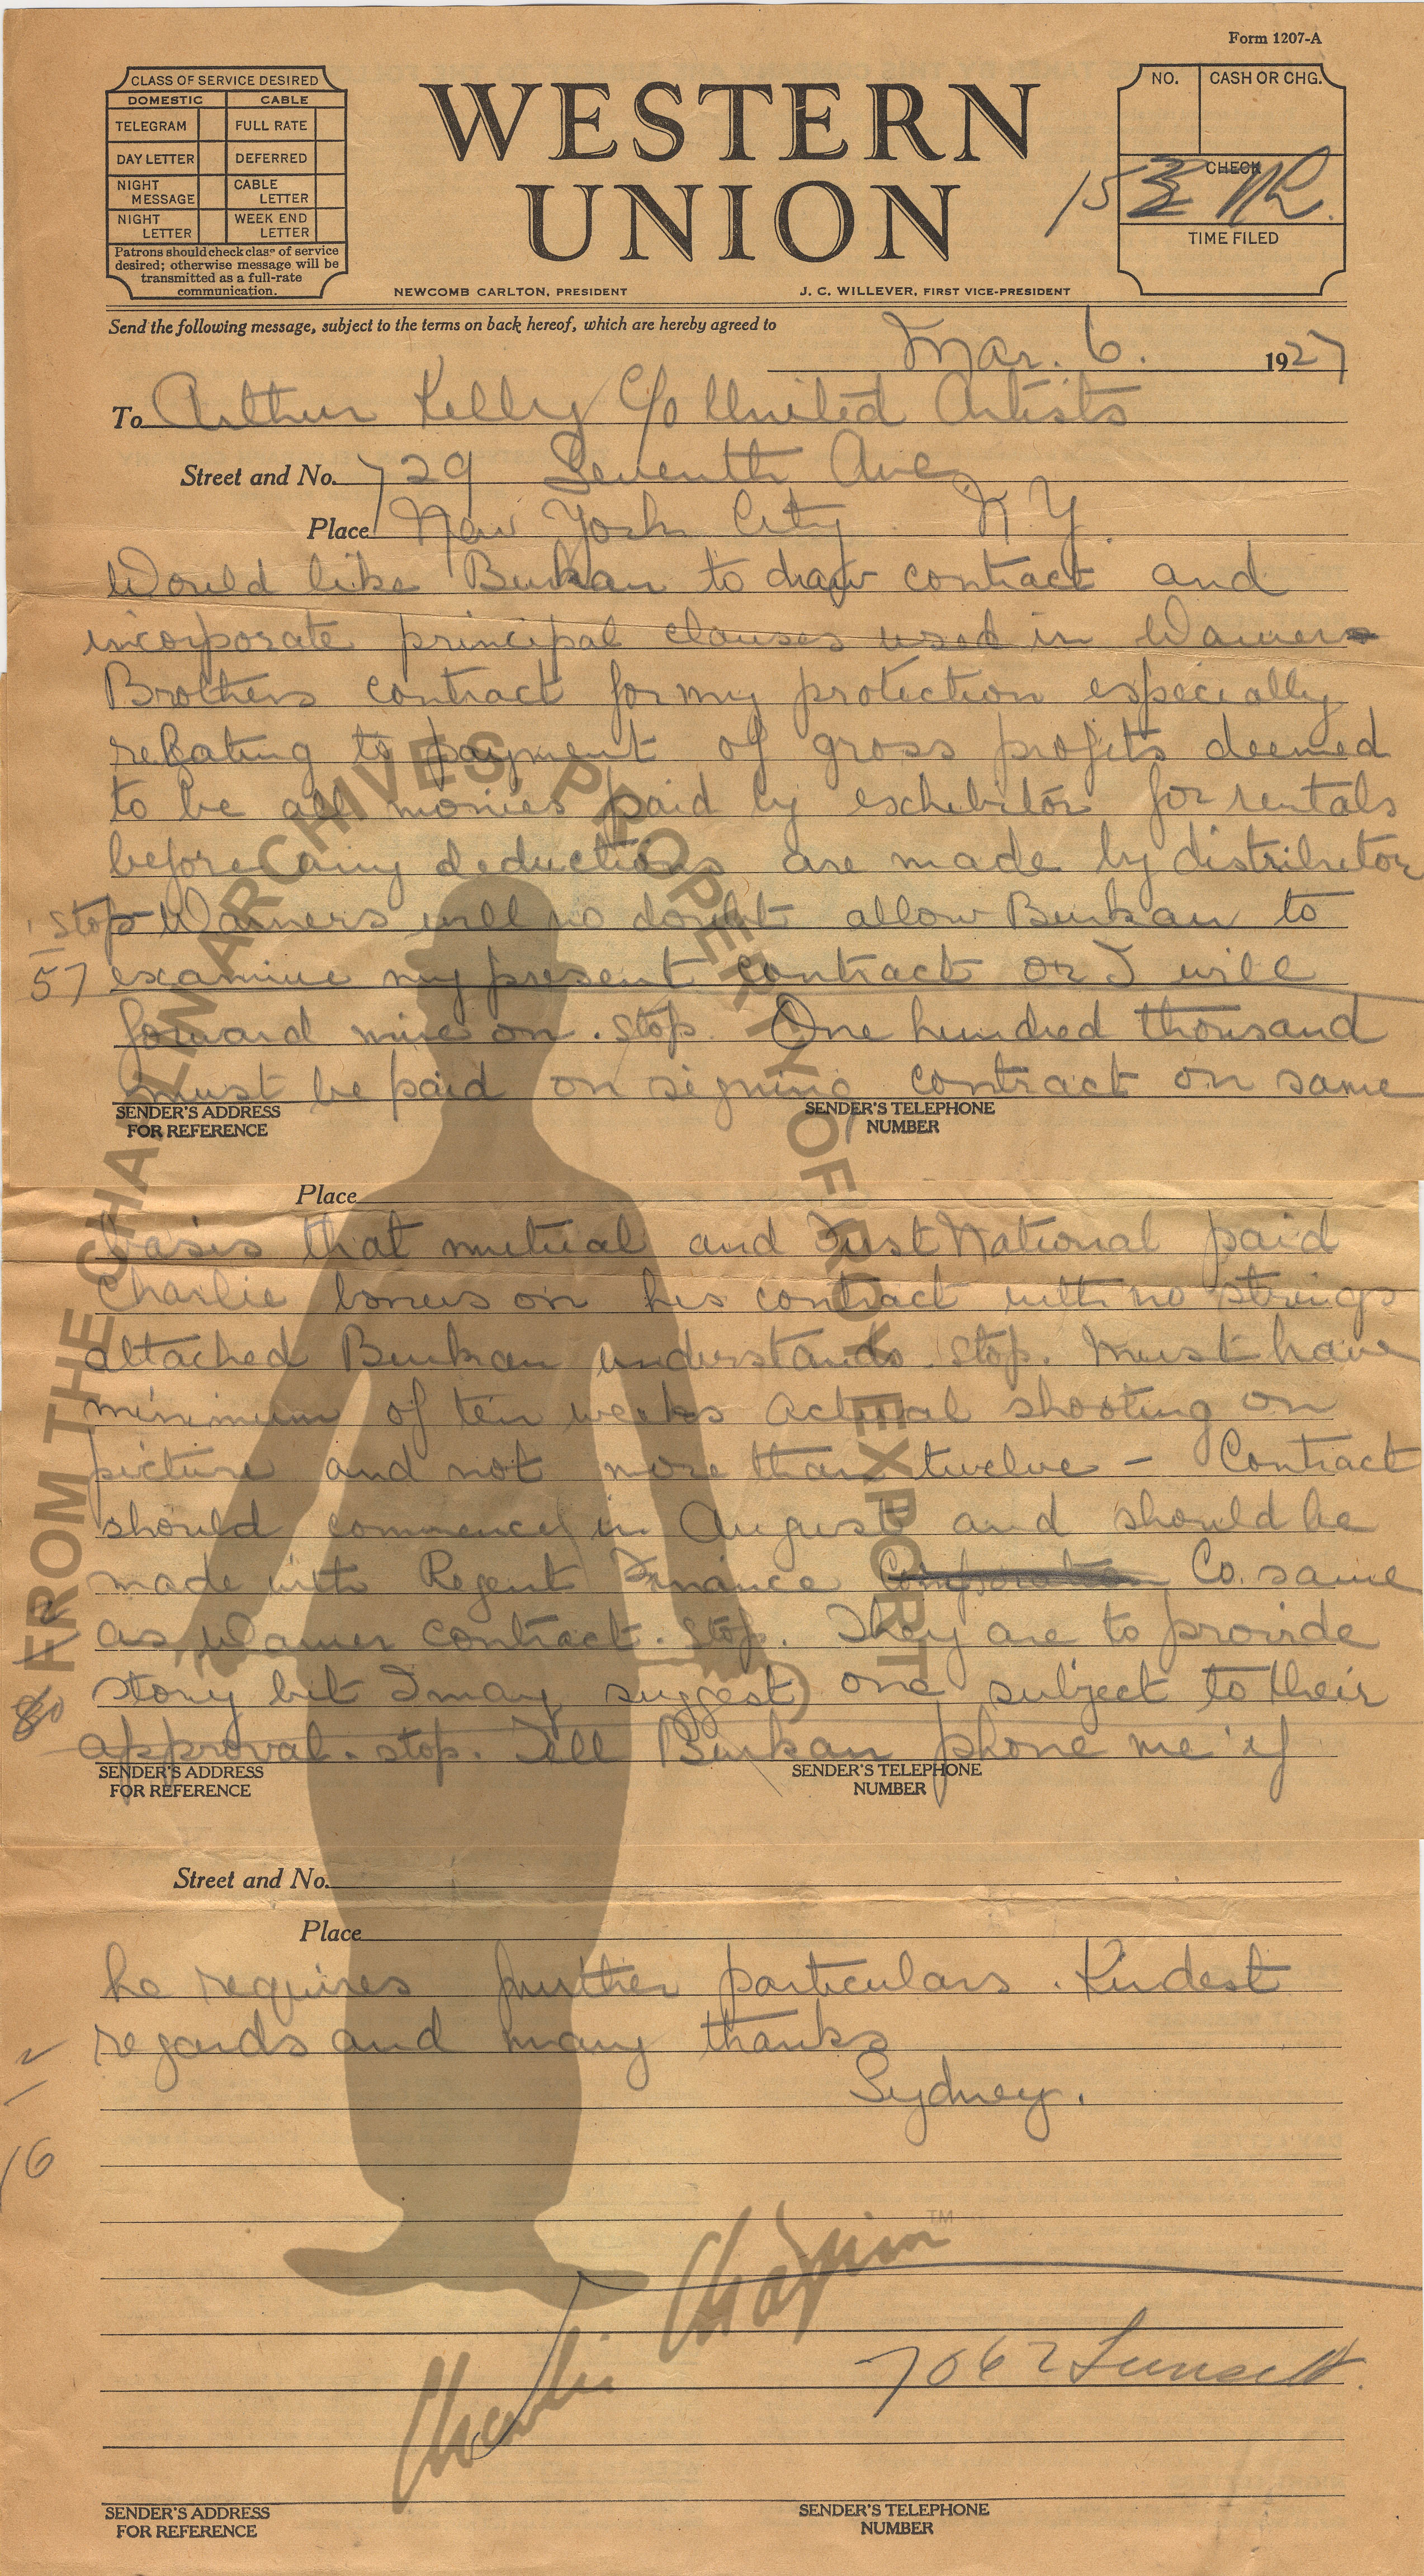 Form 1207-A
CLASS OF SERVICE DESIRED
DOMESTIC CABLE
TELEGRAM FULL RATE
DAY LETTER DEFERRED
NIGHT MESSAGE CABLE LETTER
NIGHT LETTER WEEK END LETTER
Patrons should check class of service
desired; otherwise message will be
transmitted as a full-rate
communication.
WESTERN
UNION
NEWCOMB CARLTON, PRESIDENT J. C. WILLEVER, FIRST VICE-PRESIDENT
NO. CASH OR CHG.
CHECK
TIME FILED
Send the following message, subject to the terms on back hereof, which are hereby agreed to
Mar. 6. 1927
To Arthur Kelly C/o United Artists
Street and No. 729 Seventh Ave
Place New York City N Y.
Would like Burkan to draw contract and
incorporate principal clauses used in Warner
Brothers contract for my protection especially
relating to payment of gross profits deemed
to be all monies paid by exchebitor for rentals
before any deductions are made by distributor
stop Warners will no doubt allow Burkan to
57 examine my present contract or I will
forward mine on. stop. One hundred thousand
must be paid on signing contract on same
SENDER'S ADDRESS FOR REFERENCE SENDER'S TELEPHONE NUMBER
Place
basis that mutual and First National paid
Charlie bonus on his contract with no strings
attached Burkan understands. stop. Must have
minimum of ten weeks actual shooting on
picture and not more than twelve - Contract
should commence in August and should be
made with Regent Finance Corporation Co. same
as Warner contract. stop. They are to provide
80 story but I may suggest one subject to their
approval. stop. Tell Burkan phone me if
SENDER'S ADDRESS FOR REFERENCE SENDER'S TELEPHONE NUMBER
Street and No.
Place
he requires further particulars. Kindest
regards and many thanks
Sydney.
16
7062 Sunset
SENDER'S ADDRESS FOR REFERENCE SENDER'S TELEPHONE NUMBER
FROM THE CHAPLIN ARCHIVES PROPERTY OF ROY EXPORT
Charlie Chaplin TM